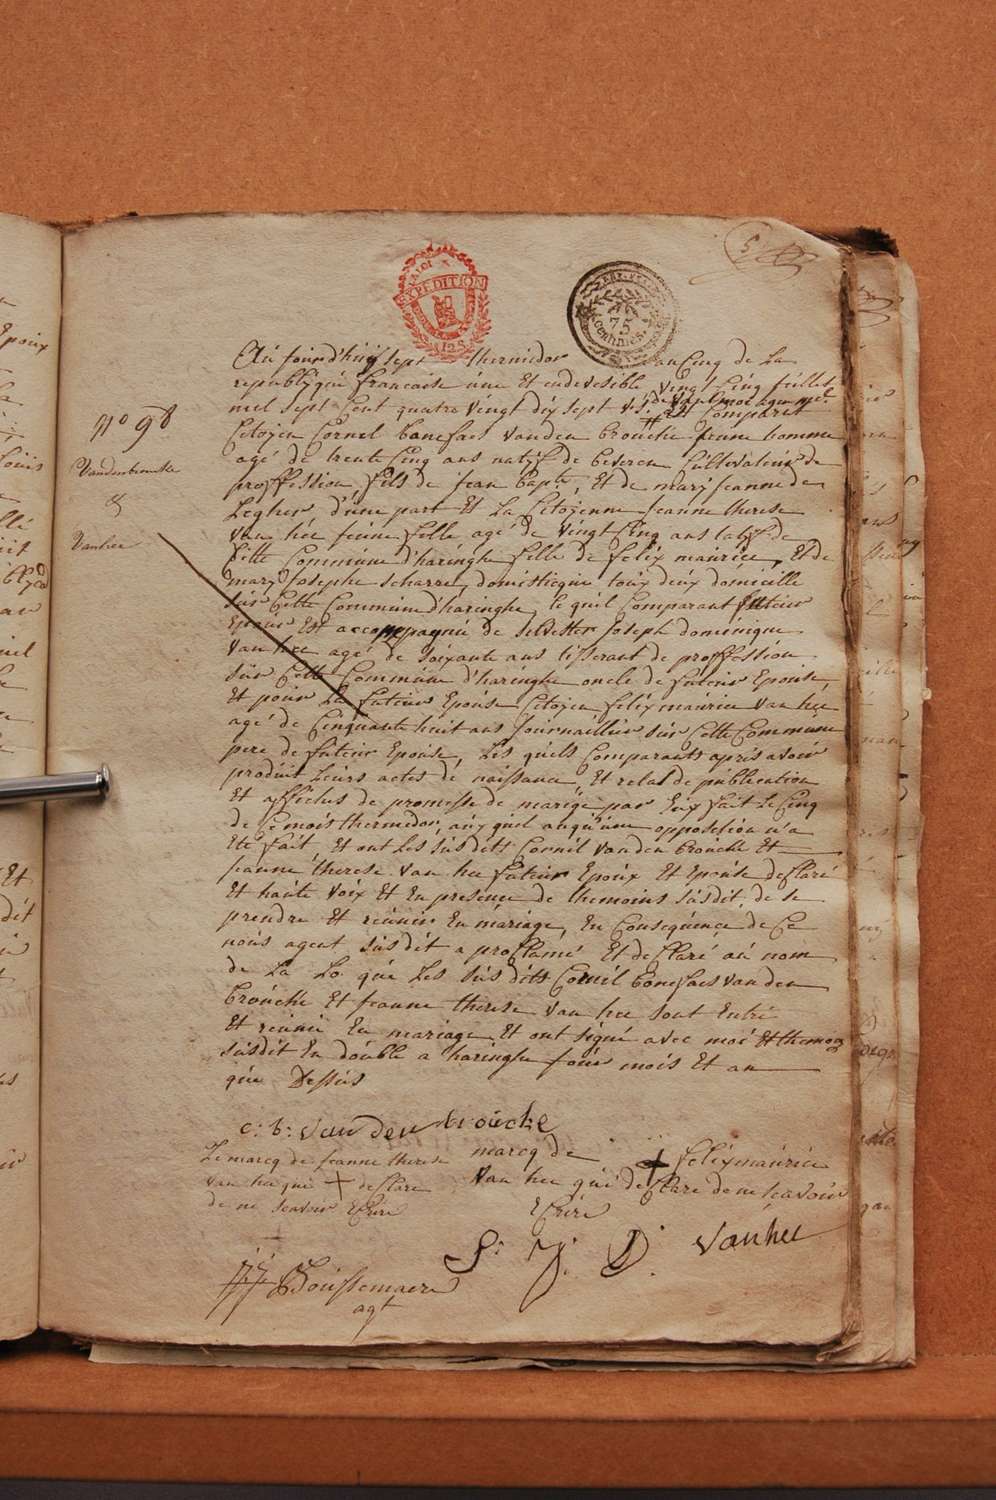 5
EXPEDITION
125
75
CENTIMES
Au jourd'huy sept thermidor an Cinq de la
republique francaise une Et endevesible vingt Cinq juillet
mil sept Cent quatre vingt dix sept
Est Comparut
n° 98
Citoyen Cornel bonefaes vanden brouche jeune homme
agé de trente Cinq ans natif de beveren Cultivateur de
Vandenbroucke
&
Vanhee
proffession, fils de jean bapte, Et de marj jeanne de
Legher d'une part Et La Citoyenne jeanne therese
Van hée jeune fille agé de vingt Cinq ans natif de
Cette Commune d'haringhe fille de felix maurice, Et de
mary Josephe scharre, domisticque tous deux domicille
sur Cette Commune d'haringhe, le quel Comparant futeur
Epoux Est accompagnié de silvester Joseph dominique
van hee agé de soixante ans tisserant de proffession
sur Cette Commune d'haringhe oncle de futeur Epouse,
Et pour La futeur Epouse Citoyen felix maurice Van hee
agé de Cinquante huit ans Journaillier sur Cette Commune
pere de futeur Epouse, Les quels Comparants apris avoir
produit Leurs actes de naissance, Et relat de publication
Et affiches de promesse de marige par Eux fait Le Cinq
de Ce mois thermedor, auquel auqu'une opposetion n'a
Ete fait, Et ont Les susdits Cornil vanden brouche Et
jeanne therese Van hee futeur Epoux Et Epouse desclaré
Et haute voix Et En presence de themoins susdit, de se
prendre Et reunir En mariage, En Consequence de Ce
nous agent susdit a proclamé Et desclaré au nom
de La Lo que Les susdits Cornil bonefaes vanden
brouche Et jeanne therese van hee sont Entré
Et reunie En mariage Et ont signé avec moi Et themoz
susdit En double a haringhe jour mois Et an
que Dessus
c: b: van den brouche
Le marcq de jeanne therese
van hee qui + desclare
de ne scavoir Ecrire
marcq de + felix maurice
van hee qui desclare de ne scavoir
Ecrire
S: J: D: vanhee
JJ Boussemaere
agt